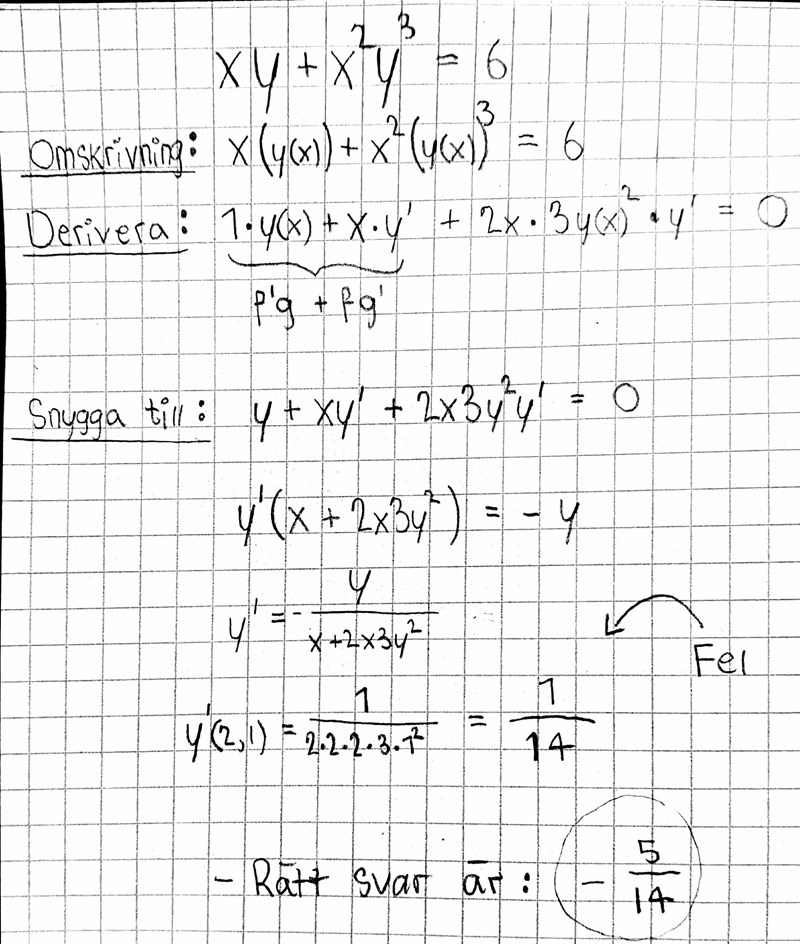 xy + x²y³ = 6
Omskrivning: x(y(x)) + x²(y(x))³ = 6
Derivera: 1·y(x) + x·y' + 2x·3y(x)²·y' = 0
f'g + fg'
Snygga till: y + xy' + 2x3y²y' = 0
y'(x + 2x3y²) = -y
y' = - y / (x+2x3y²)
Fel
y'(2,1) = 1 / (2·2·2·3·1²) = 1/14
- Rätt svar är: - 5/14